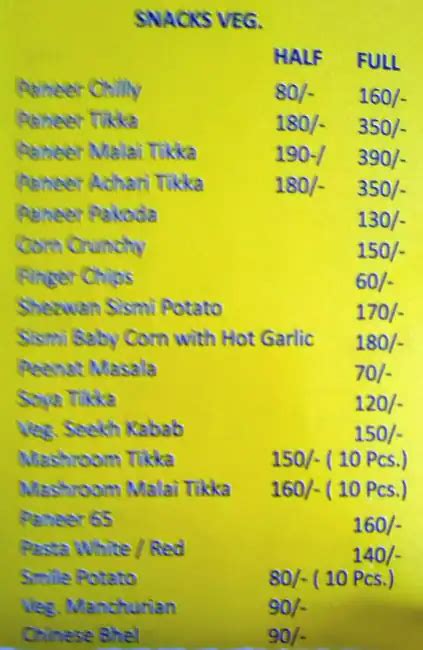 SNACKS VEG.
HALF FULL
Paneer Chilly 80/- 160/-
Paneer Tikka 180/- 350/-
Paneer Malai Tikka 190-/ 390/-
Paneer Achari Tikka 180/- 350/-
Paneer Pakoda 130/-
Corn Crunchy 150/-
Finger Chips 60/-
Shezwan Sismi Potato 170/-
Sismi Baby Corn with Hot Garlic 180/-
Peenat Masala 70/-
Soya Tikka 120/-
Veg. Seekh Kabab 150/-
Mashroom Tikka 150/- ( 10 Pcs.)
Mashroom Malai Tikka 160/- ( 10 Pcs.)
Paneer 65 160/-
Pasta White / Red 140/-
Smile Potato 80/- ( 10 Pcs.)
Veg. Manchurian 90/-
Chinese Bhel 90/-